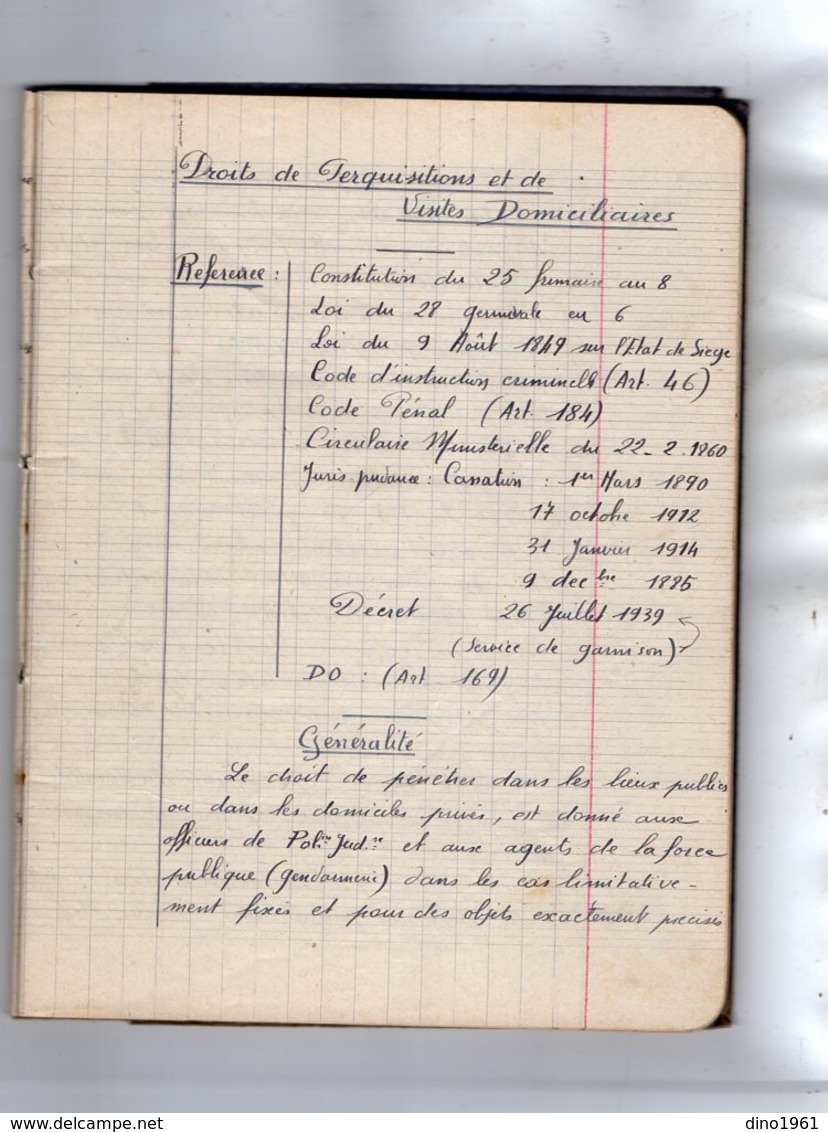 Droits de Perquisitions et de
Visites Domiciliaires
Reference : Constitution du 25 frimaire an 8
Loi du 28 germinale en 6
Loi du 9 Août 1849 sur l'Etat de Siege
Code d'instruction criminelle (Art. 46)
Code Pénal (Art. 184)
Circulaire Ministerielle du 22-2.1860
Juris prudance : Cassation : 1er Mars 1890
17 octobre 1912
31 Janvier 1914
9 decbre 1885
Décret 26 Juillet 1939
(Service de garnison)
DO : (Art 169)
Généralité
Le droit de pénétrer dans les lieux publics
ou dans les domiciles privés, est donné aux
officiers de Polire Judre et aux agents de la force
publique (gendarmerie) dans les cas limitative-
ment fixés et pour des objets exactement precisés
www.delcampe.net
dino1961